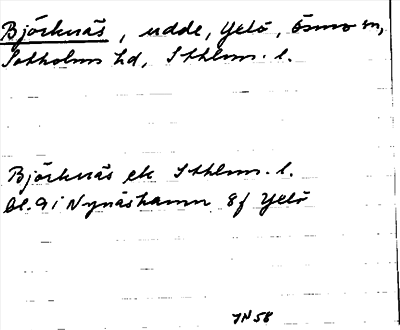 Björknäs, udde, Yxlö, Ösmo sn,
Sotholms hd, Sthlms. l.
Björknäs ek Sthlms. l.
bl. 9 i Nynäshamn 8f Yxlö
JN58